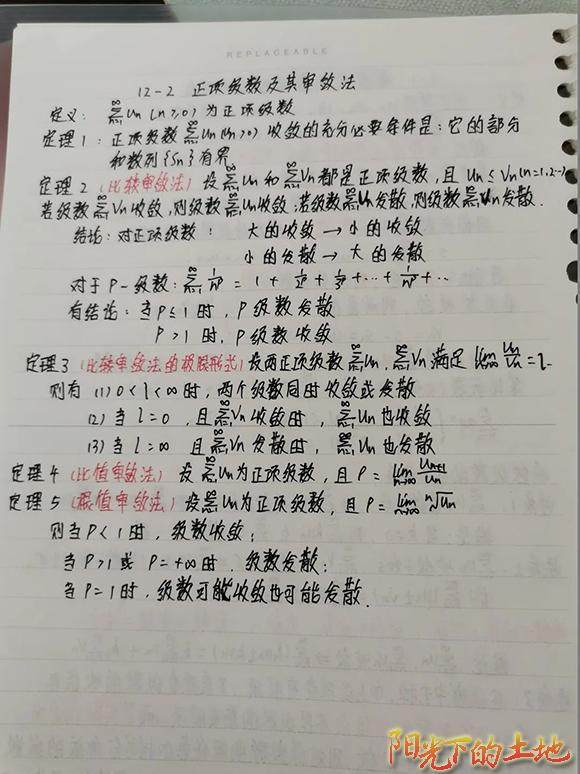 REPLACEABLE
12-2 正项级数及其审敛法
定义: ∑_{n=1}^∞ Un (Un≥0) 为正项级数
定理1: 正项级数 ∑_{n=1}^∞ Un (Un≥0) 收敛的充分必要条件是: 它的部分
和数列{Sn}有界
定理2 (比较审敛法) 设 ∑_{n=1}^∞ Un 和 ∑_{n=1}^∞ Vn 都是正项级数, 且 Un ≤ Vn (n=1,2…)
若级数 ∑_{n=1}^∞ Vn 收敛, 则级数 ∑_{n=1}^∞ Un 收敛; 若级数 ∑_{n=1}^∞ Un 发散, 则级数 ∑_{n=1}^∞ Vn 发散.
结论: 对正项级数: 大的收敛 → 小的收敛
小的发散 → 大的发散
对于P-级数: ∑_{n=1}^∞ 1/n^p = 1 + 1/2^p + 1/3^p + … + 1/n^p + …
有结论: 当P≤1时, P级数发散
P>1时, P级数收敛
定理3 (比较审敛法的极限形式) 设两正项级数 ∑_{n=1}^∞ Un, ∑_{n=1}^∞ Vn 满足 lim_{n→∞} Un/Vn = l.
则有 (1) 0<l<∞时, 两个级数同时收敛或发散
(2) 当 l=0, 且 ∑_{n=1}^∞ Vn 收敛时, ∑_{n=1}^∞ Un 也收敛
(3) 当 l=∞ 且 ∑_{n=1}^∞ Vn 发散时, ∑_{n=1}^∞ Un 也发散
定理4 (比值审敛法) 设 ∑_{n=1}^∞ Un 为正项级数, 且 ρ = lim_{n→∞} U_{n+1}/Un
定理5 (根值审敛法) 设 ∑_{n=1}^∞ Un 为正项级数, 且 ρ = lim_{n→∞} ⁿ√Un
则当 ρ<1 时, 级数收敛;
当 ρ>1 或 ρ=+∞ 时, 级数发散;
当 ρ=1 时, 级数可能收敛也可能发散.
阳光下的土地